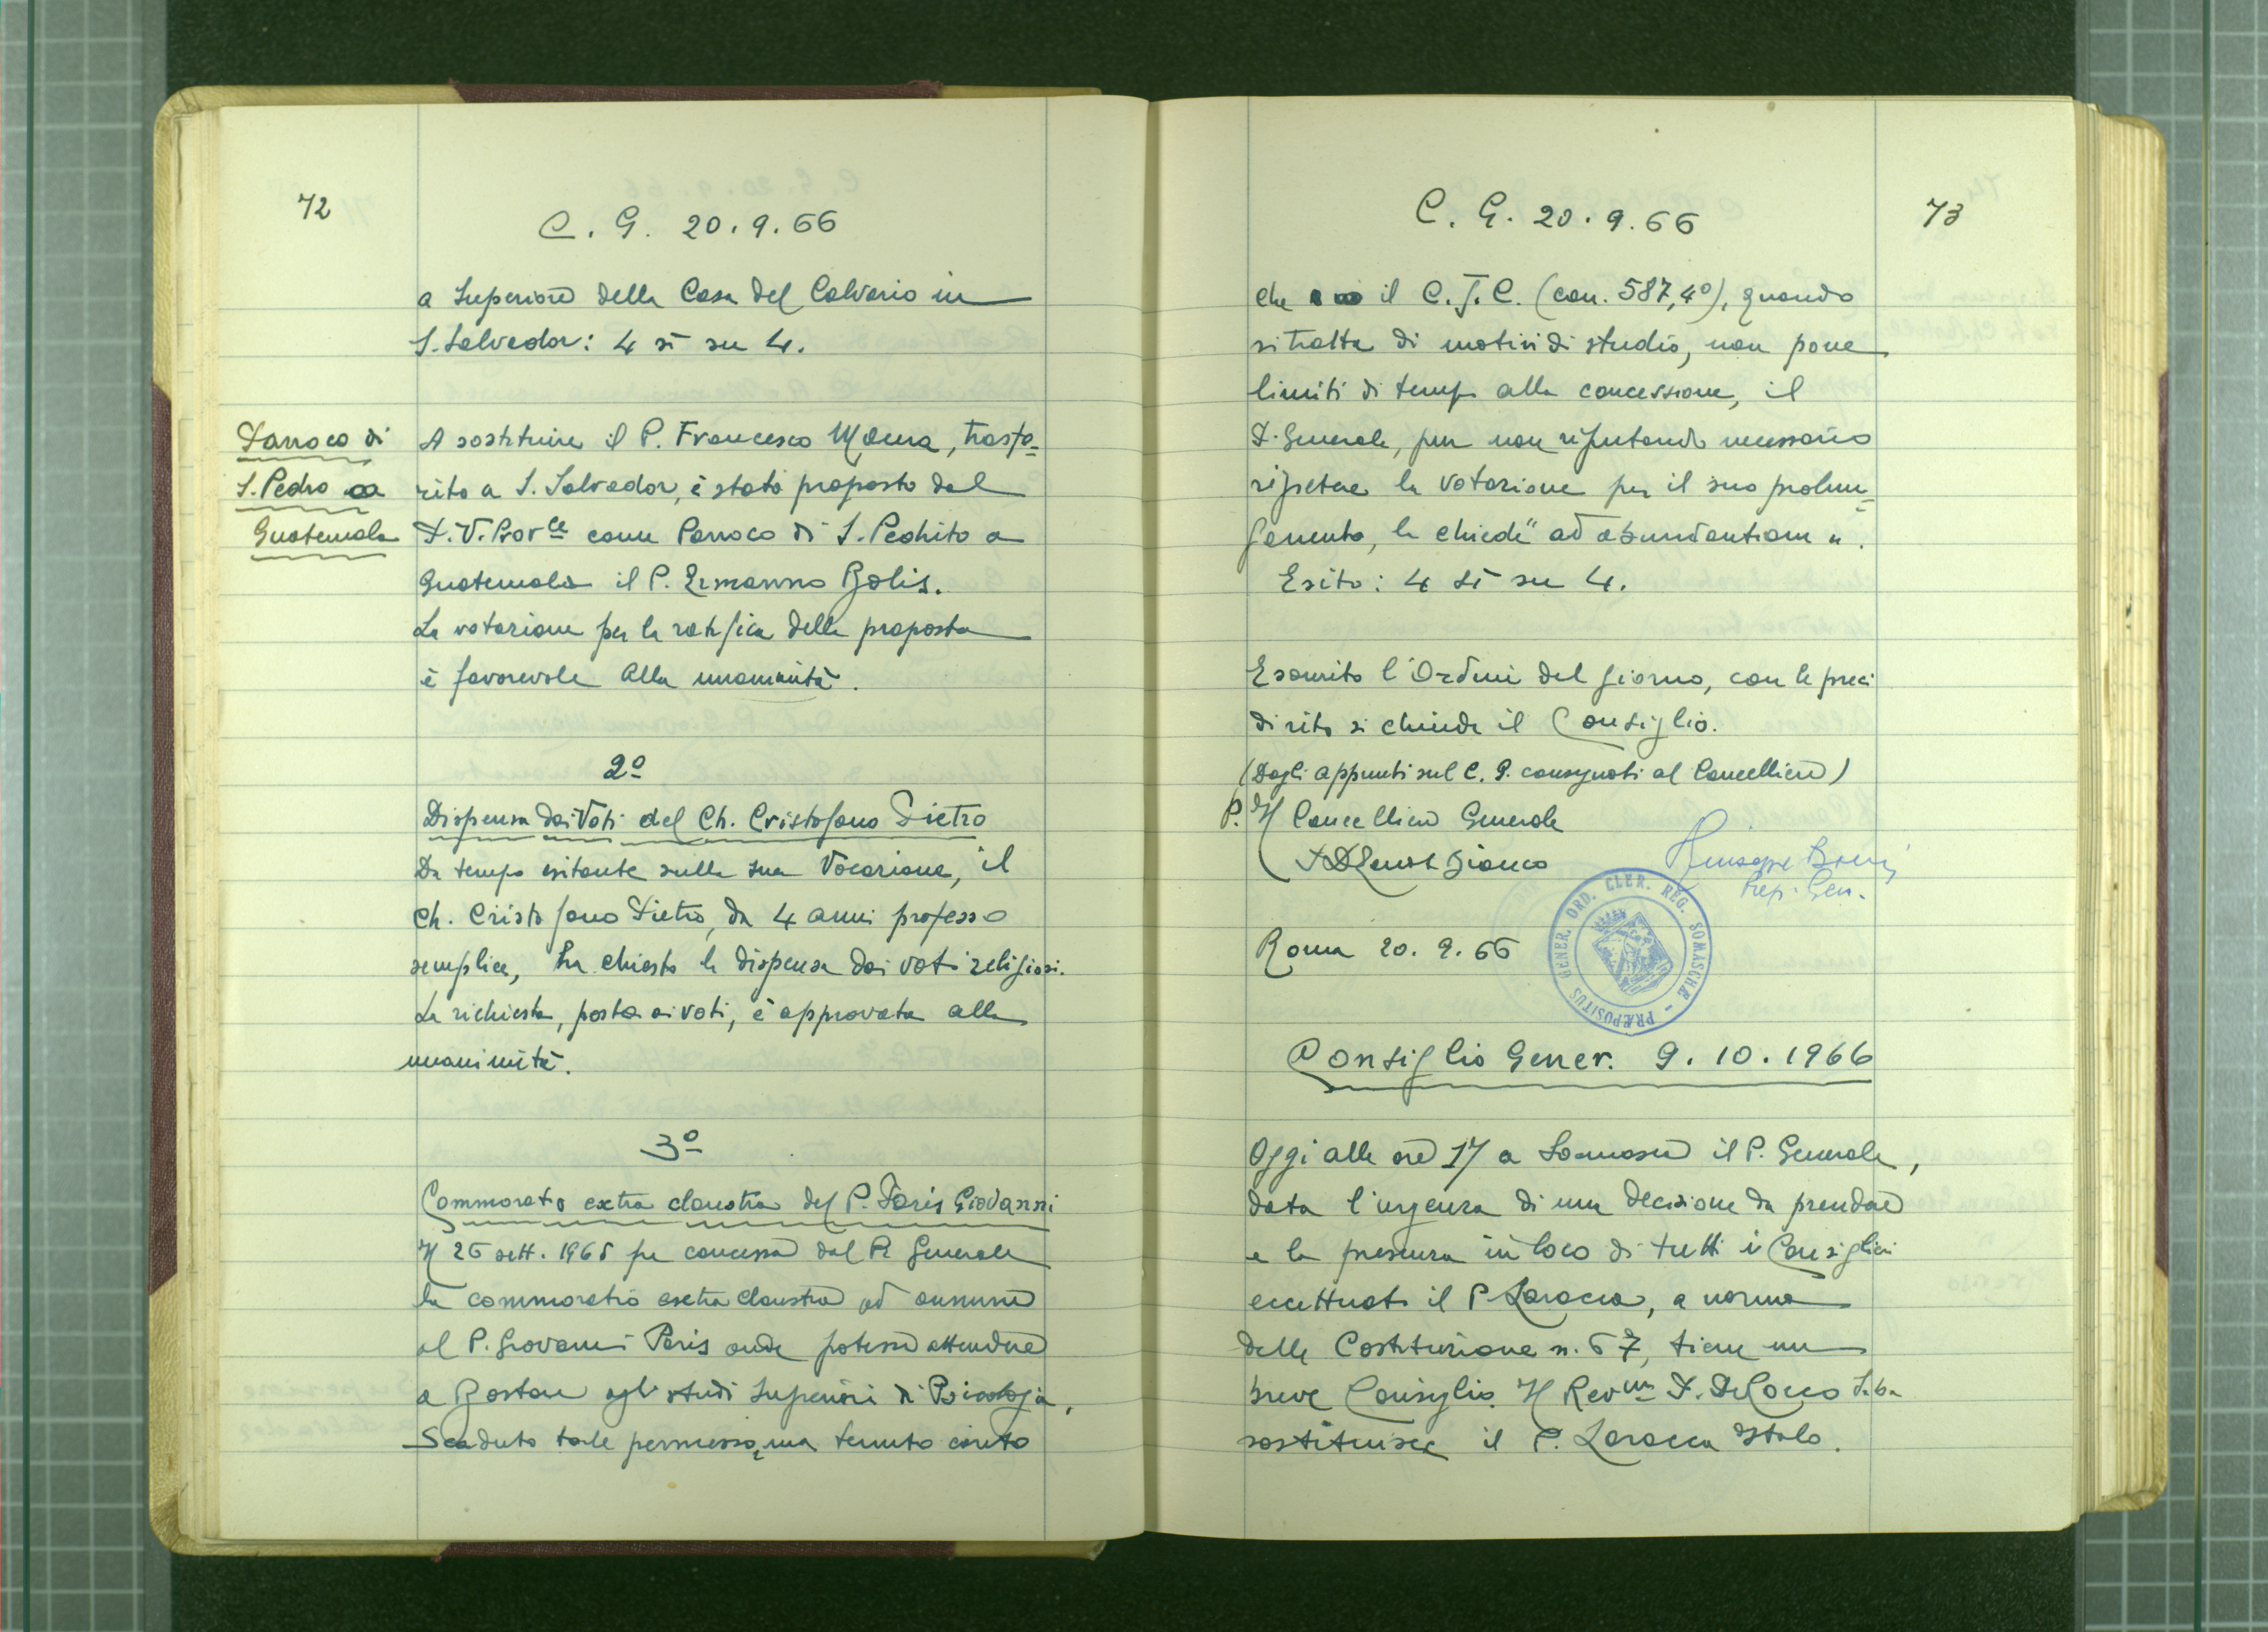 72
C. G. 20.9.66
a Superiore della Casa del Calvario in
S. Salvador: 4 sì su 4.
Parroco di
S. Pedro a
Guatemala
A sostituire il P. Francesco Moura, trasfe=
rito a S. Salvador, è stato proposto dal
P. V. Provle come Parroco di S. Pedrito a
Guatemala il P. Ermanno Bolis.
La votazione per la ratifica della proposta
è favorevole alla unanimità.
2º
Dispensa dai Voti del Ch. Cristofano Pietro
Da tempo esitante sulla sua Vocazione, il
Ch. Cristofano Pietro, da 4 anni professo
semplice, ha chiesto la dispensa dai voti religiosi.
La richiesta, posta ai voti, è approvata alla
unanimità.
3º
Commoratio extra claustra del P. Paris Giovanni
Il 26 sett. 1965 fu concessa dal P. Generale
la commoratio extra claustra ad annum
al P. Giovanni Paris onde potesse attendere
a Boston agli studi Superiori di Psicologia.
Scaduto tale permesso, ma tenuto conto
C. G. 20.9.66
73
che il C.J.C. (can. 587,4º), quando
si tratta di motivi di studio, non pone
limiti di tempo alla concessione, il
P. Generale, pur non reputando necessario
ripetere la votazione per il suo prolun=
gamento, la chiede "ad abundantiam".
Esito: 4 sì su 4.
Esaurito l'Ordine del giorno, con le preci
di rito si chiude il Consiglio.
(Dagli appunti sul C. G. consegnati al Cancelliere)
P. Il Cancelliere Generale
Bianco
Giuseppe
Prep. Gen.
Roma 20.9.66
PRÆPOSITUS GENER. ORD. CLER. REG. SOMASCHÆ
Consiglio Gener. 9.10.1966
Oggi alle ore 17 a Somasca il P. Generale,
data l'urgenza di una decisione da prendere
e la presenza in loco di tutti i Consiglieri
eccettuato il P. Laracca, a norma
delle Costituzione n. 67, tiene un
breve Consiglio. Il Revmo P. De Rocco Saba
sostituisce il P. Laracca Italo.